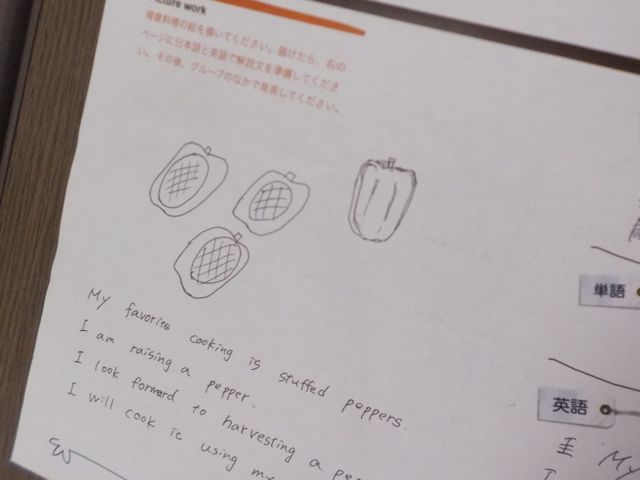 Picture work
得意料理の絵を描いてください。描けたら、右の
ページに日本語と英語で解説文を準備してくださ
い。その後、グループのなかで発表してください。
My favorite cooking is stuffed peppers.
I am raising a pepper.
I look forward to harvesting a
I will cook it using my
単語
英語
My
I